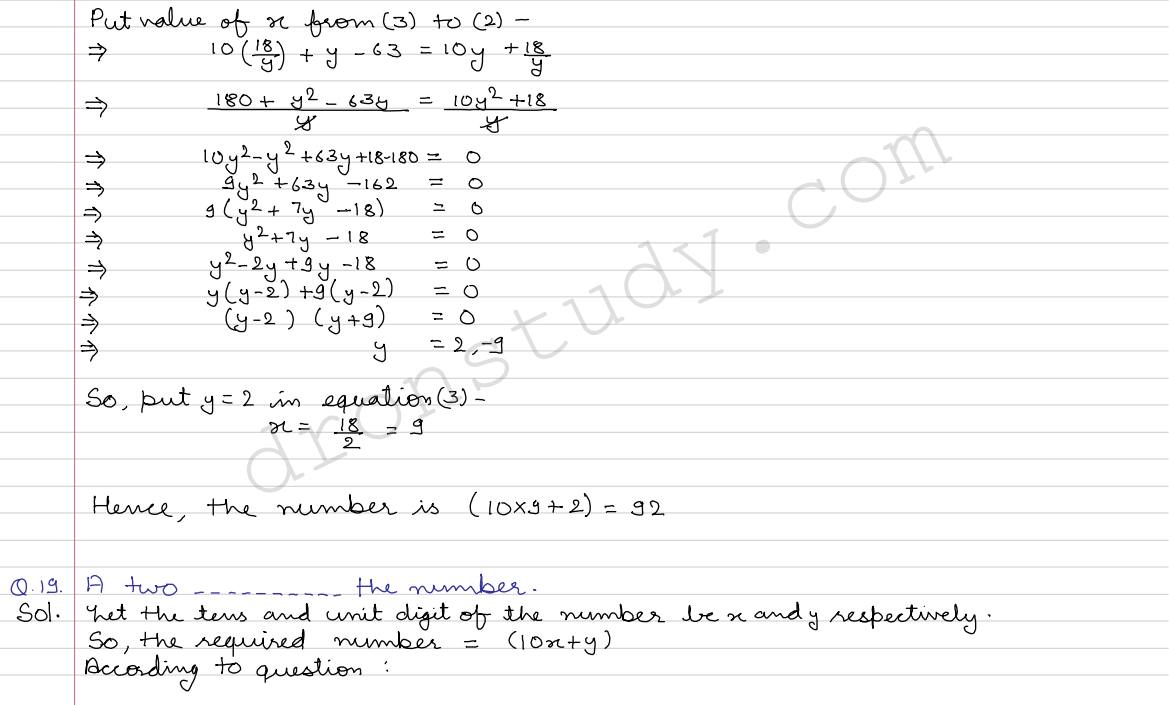 Put value of x from (3) to (2) –
⇒ 10(18/y) + y – 63 = 10y + 18/y
⇒ (180 + y² – 63y)/y = (10y² + 18)/y
⇒ 10y² – y² + 63y + 18 – 180 = 0
⇒ 9y² + 63y – 162 = 0
⇒ 9(y² + 7y – 18) = 0
⇒ y² + 7y – 18 = 0
⇒ y² – 2y + 9y – 18 = 0
⇒ y(y – 2) + 9(y – 2) = 0
⇒ (y – 2) (y + 9) = 0
⇒ y = 2, –9
So, put y = 2 in equation (3) –
x = 18/2 = 9
Hence, the number is (10×9+2) = 92
Q.19. A two ---------- the number.
Sol. Let the tens and unit digit of the number be x and y respectively.
So, the required number = (10x+y)
According to question :
dronstudy.com